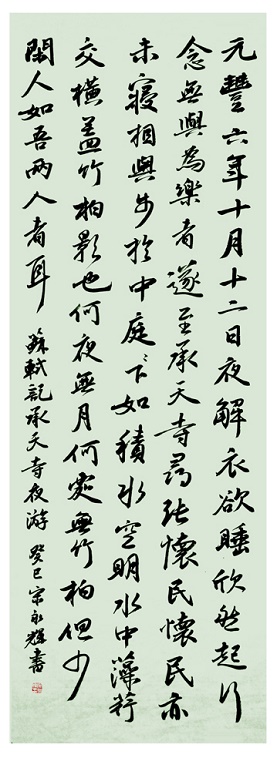 元豐六年十月十二日夜解衣欲睡欣然起行
念無與為樂者遂至承天寺尋張懷民懷民亦
未寢相與步於中庭〻下如積水空明水中藻荇
交橫蓋竹柏影也何夜無月何處無竹柏但少
閑人如吾兩人者耳 蘇軾記承天寺夜游 癸巳宋永輝書